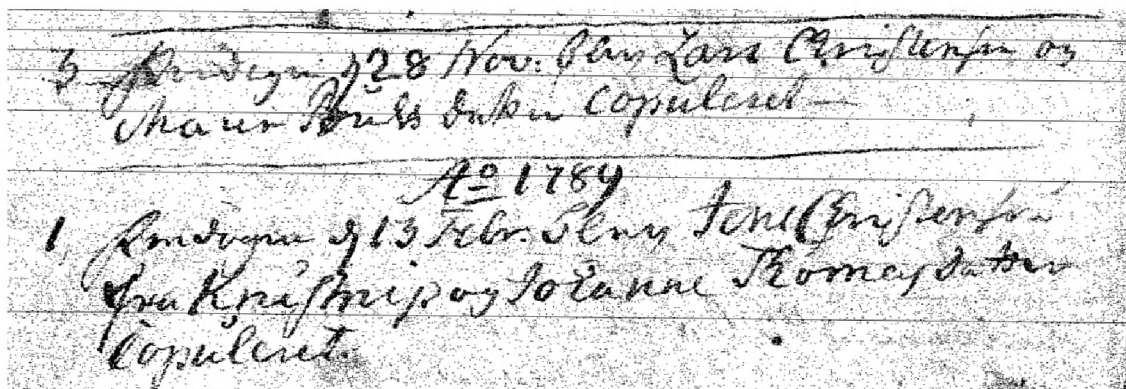 3 Fredagen d 28 Nov: blev Lars Christensen og
Maren Pouls dater Copuleret
Aō 1784
1, Fredagen d 13 Febr. blev Jens Christensen
fra og Johanne Thomas datter
Copuleret